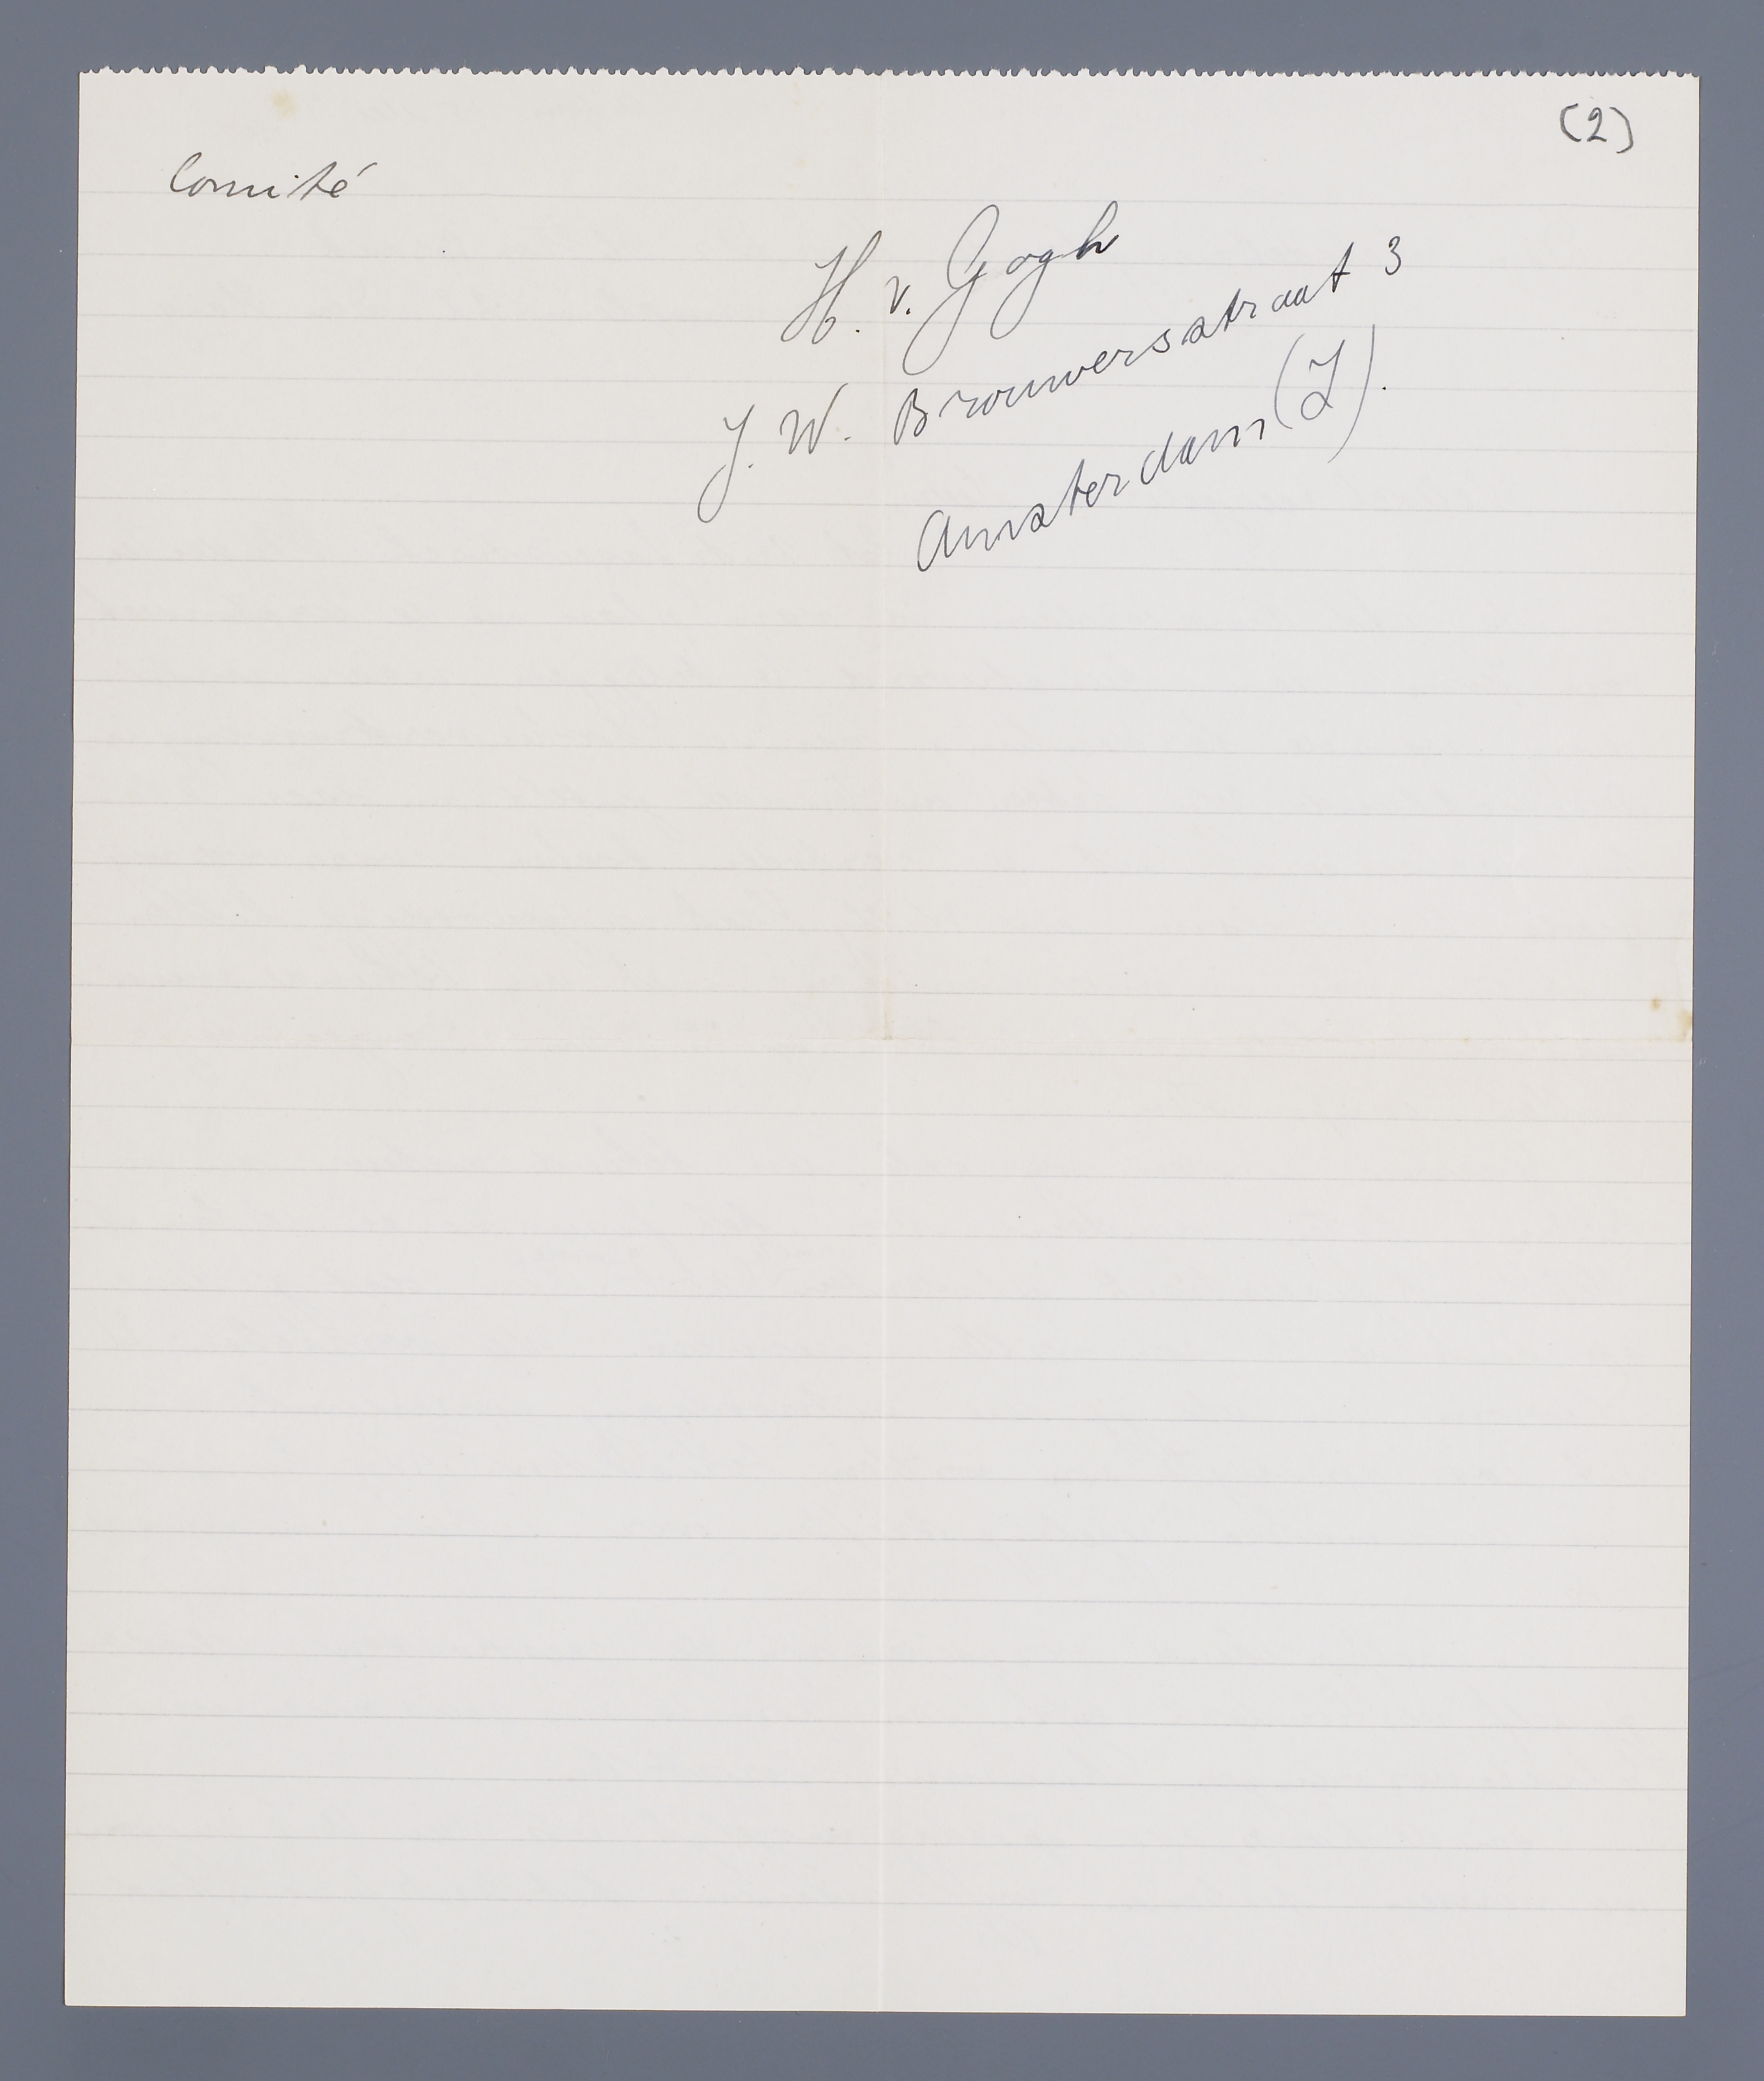 (2)
Comité
H. v. Gogh
J. W. Brouwersstraat 3
Amsterdam (Z).